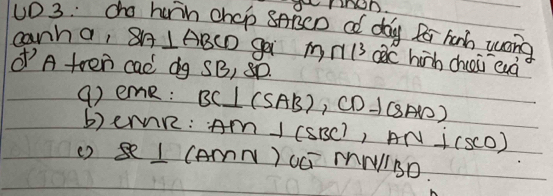 VD3: cho hình chóp SABCD có đáy là hình vuông
cạnh a, SA ⊥ ABCD gọi M, N là các hình chiếu của
đ' A trên các đg SB, SD.
a) CMR: BC ⊥ (SAB), CD ⊥ (SAD)
b) CMR: AM ⊥ (SBC), AN ⊥ (SCD)
c) SC ⊥ (AMN) và MN // BD.